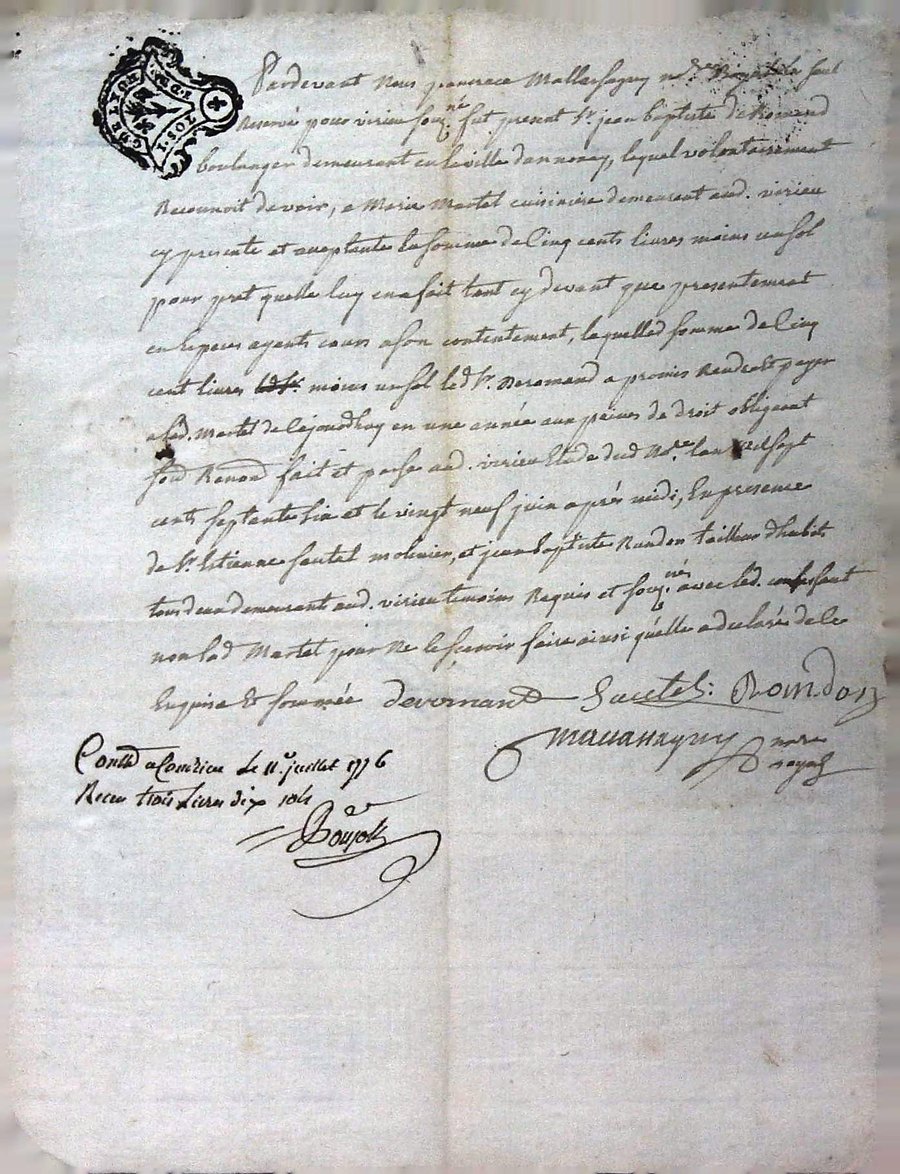 G. DE LYON
1. SOL
Pardevant Nous Mallassagny no.re Royal le seul
Reservé pour virieu souz.né fut present Sr. jean baptiste de Romand
boulanger demeurant en la ville dannonay, lequel volontairement
Reconnoit devoir, a Marie Martel cuisiniere demeurant aud. virieu
cy presente et acceptante la somme de Cinq cents livres moins un sol
pour pret quelle luy en a fait tant cy devant que presentement
en especes ayants cours a son contentement, laquelled somme de Cinq
cent livres moins un sol led Sr. Deromand a promis Rendre et payer
a lad. Martel de cejourdhuy en une année aux peines de droit obligeant
fait et passé aud. virieu Etude dud No.re lan mil sept
cents septante six et le vingt neuf juin après midi, En presence
de Sr. Etienne sautel et jean baptiste Randon tailleur dhabits
tous deux demeurant aud. virieu temoins Requis et souz.nés avec led. confessant
non lad Martel pour Ne le sçavoir faire ainsi qu'elle a declaré de ce
Enquise et sommée devomand Sautel: Rondon
no.re
royal
Contllé a Condrieu le 11e. juillet 1776
Recu trois Livres dix sols